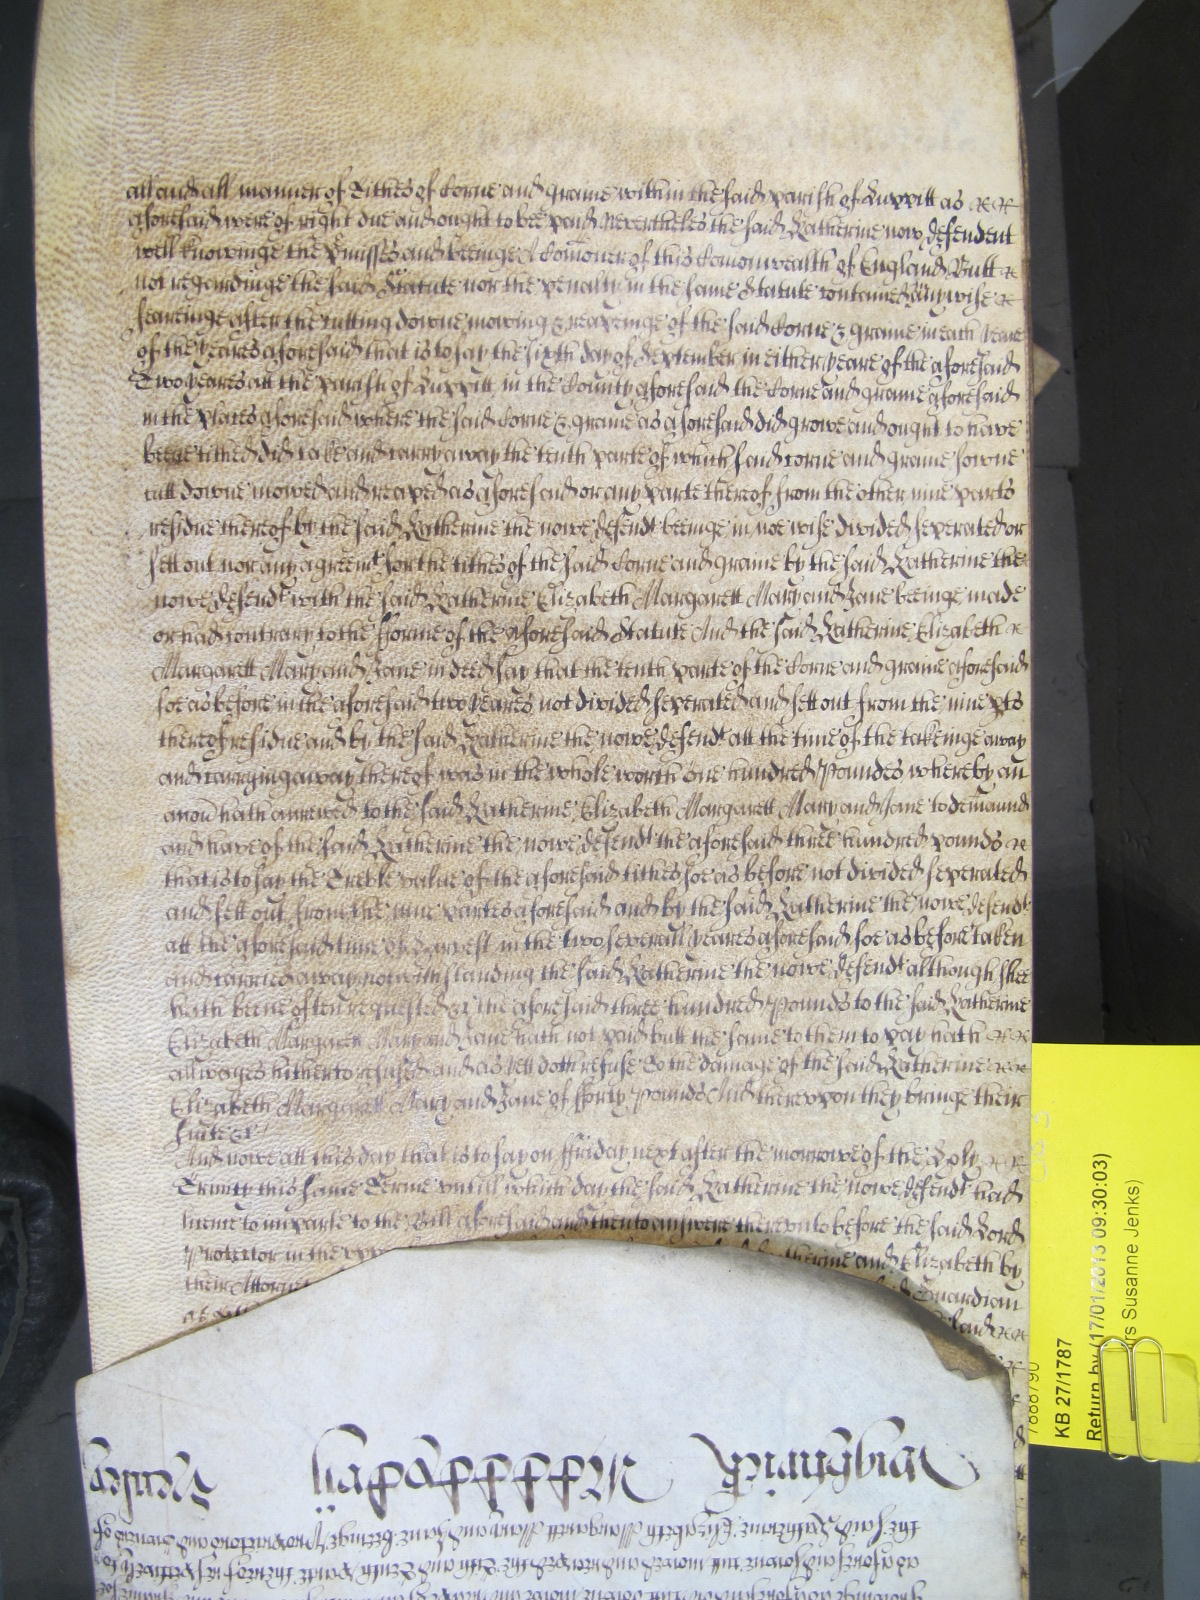 all and all manner of Tithes of Corne and graine within the said parish of Luppitt as
aforesaid were of right due and ought to bee paid Nevertheles the said Katherine now defendent
well knowinge the Pmisses and beeinge A Comoner of this Comonwealth of England Butt
not regardinge the said Statute nor the penalty in the same Statute contained Anywise
feareinge after the cutting downe mowing & reapeinge of the said Corne & graine in each yeare
of the yeares aforesaid that is to say the sixth day of September in either yeare of the aforesaid
Two yeares att the parish of Luppitt in the County aforesaid the Corne and graine aforesaid
in the places aforesaid where the said Corne & graine as aforesaid did growe and ought to have
beene tithed did take and carry away the tenth parte of which said corne and graine sowne
cutt downe mowed and reaped as aforesaid or any parte thereof from the other nine parts
residue thereof by the said Katherine the nowe defendt beeinge in noe wise divided seperated or
sett out nor any agreemt for the tithes of the said Corne and graine by the said Katherine the
nowe defendt with the said Katherine Elizabeth Margarett Mary and Jane beeinge made
or had contrary to the fforme of the aforesaid Statute And the said Katherine Elizabeth
Margarett Mary and Jane in deed say that the tenth parte of the Corne and graine aforesaid
soe as before in the aforesaid two yeares not divided seperated and sett out from the nine pts
thereof residue and by the said Katherine the nowe defendt att the time of the takeinge away
and carryinge away thereof was in the whole worth one hundred Poundes whereby an
accon hath accrewed to the said Katherine Elizabeth Margarett Mary and Jane to demaund
and have of the said Katherine the nowe defendt the aforesaid three hundred pounds
that is to say the Treble value of the aforesaid tithes soe as before not divided seperated
and sett out from the nine partes aforesaid and by the said Katherine the nowe defendt
att the aforesaid time of Harvest in the two severall yeares aforesaid soe as before taken
and carried away notwithstanding the said Katherine the nowe defendt although shee
hath beene often requested &c the aforesaid three hundred Pounds to the said Katherine
Elizabeth Margarett Mary and Jane hath not paid butt the same to them to pay hath
allwayes hitherto refused and as yett doth refuse To the damage of the said Katherine
Elizabeth Margarett Mary and Jane of fforty Pounds And thereupon they bringe their
suite &c
And nowe att this day that is to say on ffriday next after the morrowe of the Holy
Trinity this same Terme untill which day the said Katherine the nowe defendt had
licence to imparle to the Bill aforesaid and then to answere thereunto before the said Lord
Protector in the upp Katherine and Elizabeth by
their Attorne Guardian
said
7888790
KB 27/1787
Return by (17/01/2013 09:30:03)
rs Susanne Jenks)
the said Katherine Elizabeth Margarett Mary and Jane beeinge Proprietors and Owners of